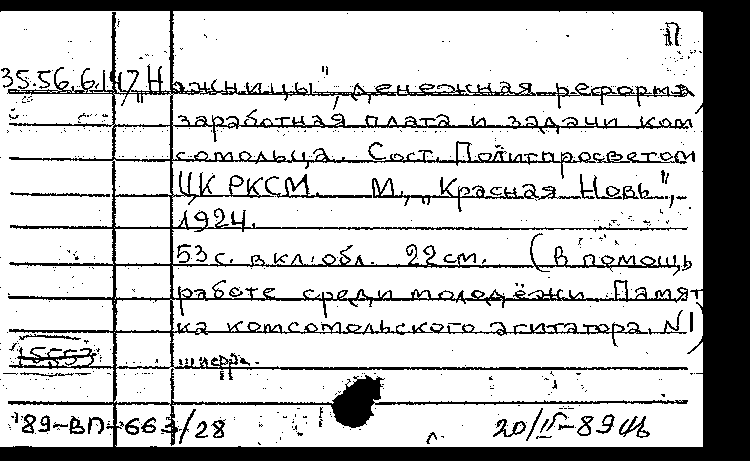 П
35.56.6.147 „Ножницы", денежная реформа,
заработная плата и задачи ком
сомольца. Сост. Политпросветом
ЦК РКСМ. М., „Красная Новь",
1924.
53 с. вкл. обл. 22 см. (В помощь
работе среди молодёжи. Памят
ка комсомольского агитатора. N1)
15553
89-ВП-663/28